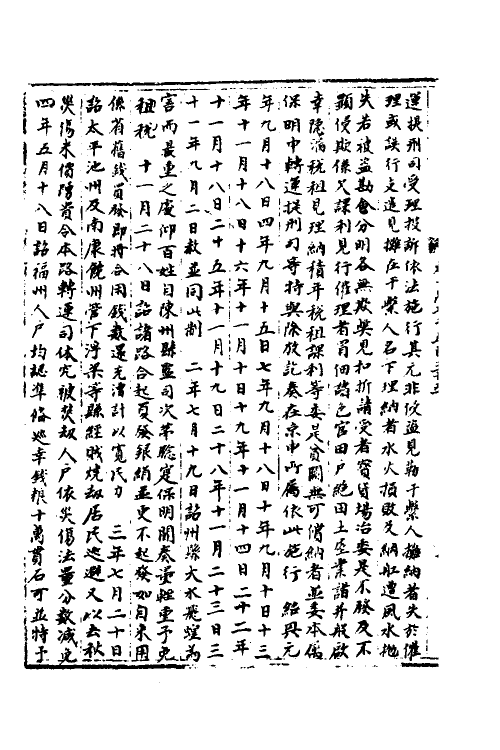 運提刑司受理投訴依法施行其元非侵盜見勒干繫人攤納者失於催
理或誤行支遣見攤在干繫人名下理納者水火損敗欠納舡遭風水拋
失若被盜勘會分明各無欺弊見扣折請受者窰貨場冶委是不發及不
顯侵欺係欠課利見行催理者買佃諸色官田戶絕田土產業諸井戤啟
幸隱漏稅租見理納積年稅租課利等委是貧闕無可償納者並委本
保明申轉運提刑司等持與除放訖奏在京申所屬依此施行 紹興元
年九月十八日四年九月十五日七年九月十八日十年九月十日十三
年十一月十八日十六年十一月十日十九年十一月十四日二十二年
十一月十八日二十五年十一月十九日二十八年十一月二十三日三
十一年九月二日赦並同此制 二年七月十九日詔州縣大水飛蝗為
害而最重之處仰百姓自陳州縣監司次第驗實保明開奏量輕重予免
租稅 十一月二十八日詔諸路合起買發銀絹並更不起發如自來用
係省舊錢買發即將合用錢數還充漕計以寬民力 三年七月二十日
詔太平池州及南康饒州管下浮梁等縣經賊燒劫居民逃避又以去秋
災傷米價騰貴令本路轉運司体究被焚劫人戶依災傷法量分數減免
四年五月十八日詔福州人戶均認準俻巡幸錢粮十萬貫石可並特予